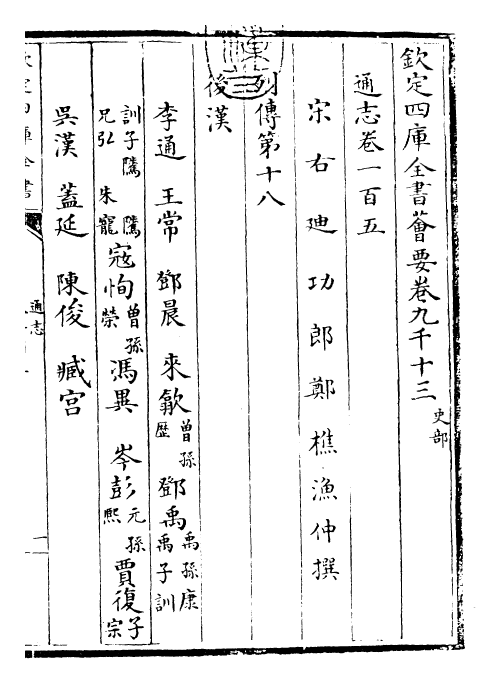 欽定四庫全書薈要卷九千十三 史部
通志卷一百五
宋右迪功郎鄭樵漁仲撰
列傳第十八
後漢
李通 王常 鄧晨 來歙 曾孫歷 鄧禹 禹孫康 禹子訓
訓子隲 隲兄弘 朱寵 寇恂 曾孫榮 馮異 岑彭 元孫熙 賈復 子宗
吳漢 蓋延 陳俊 臧宮
欽定四庫全書
通志
一